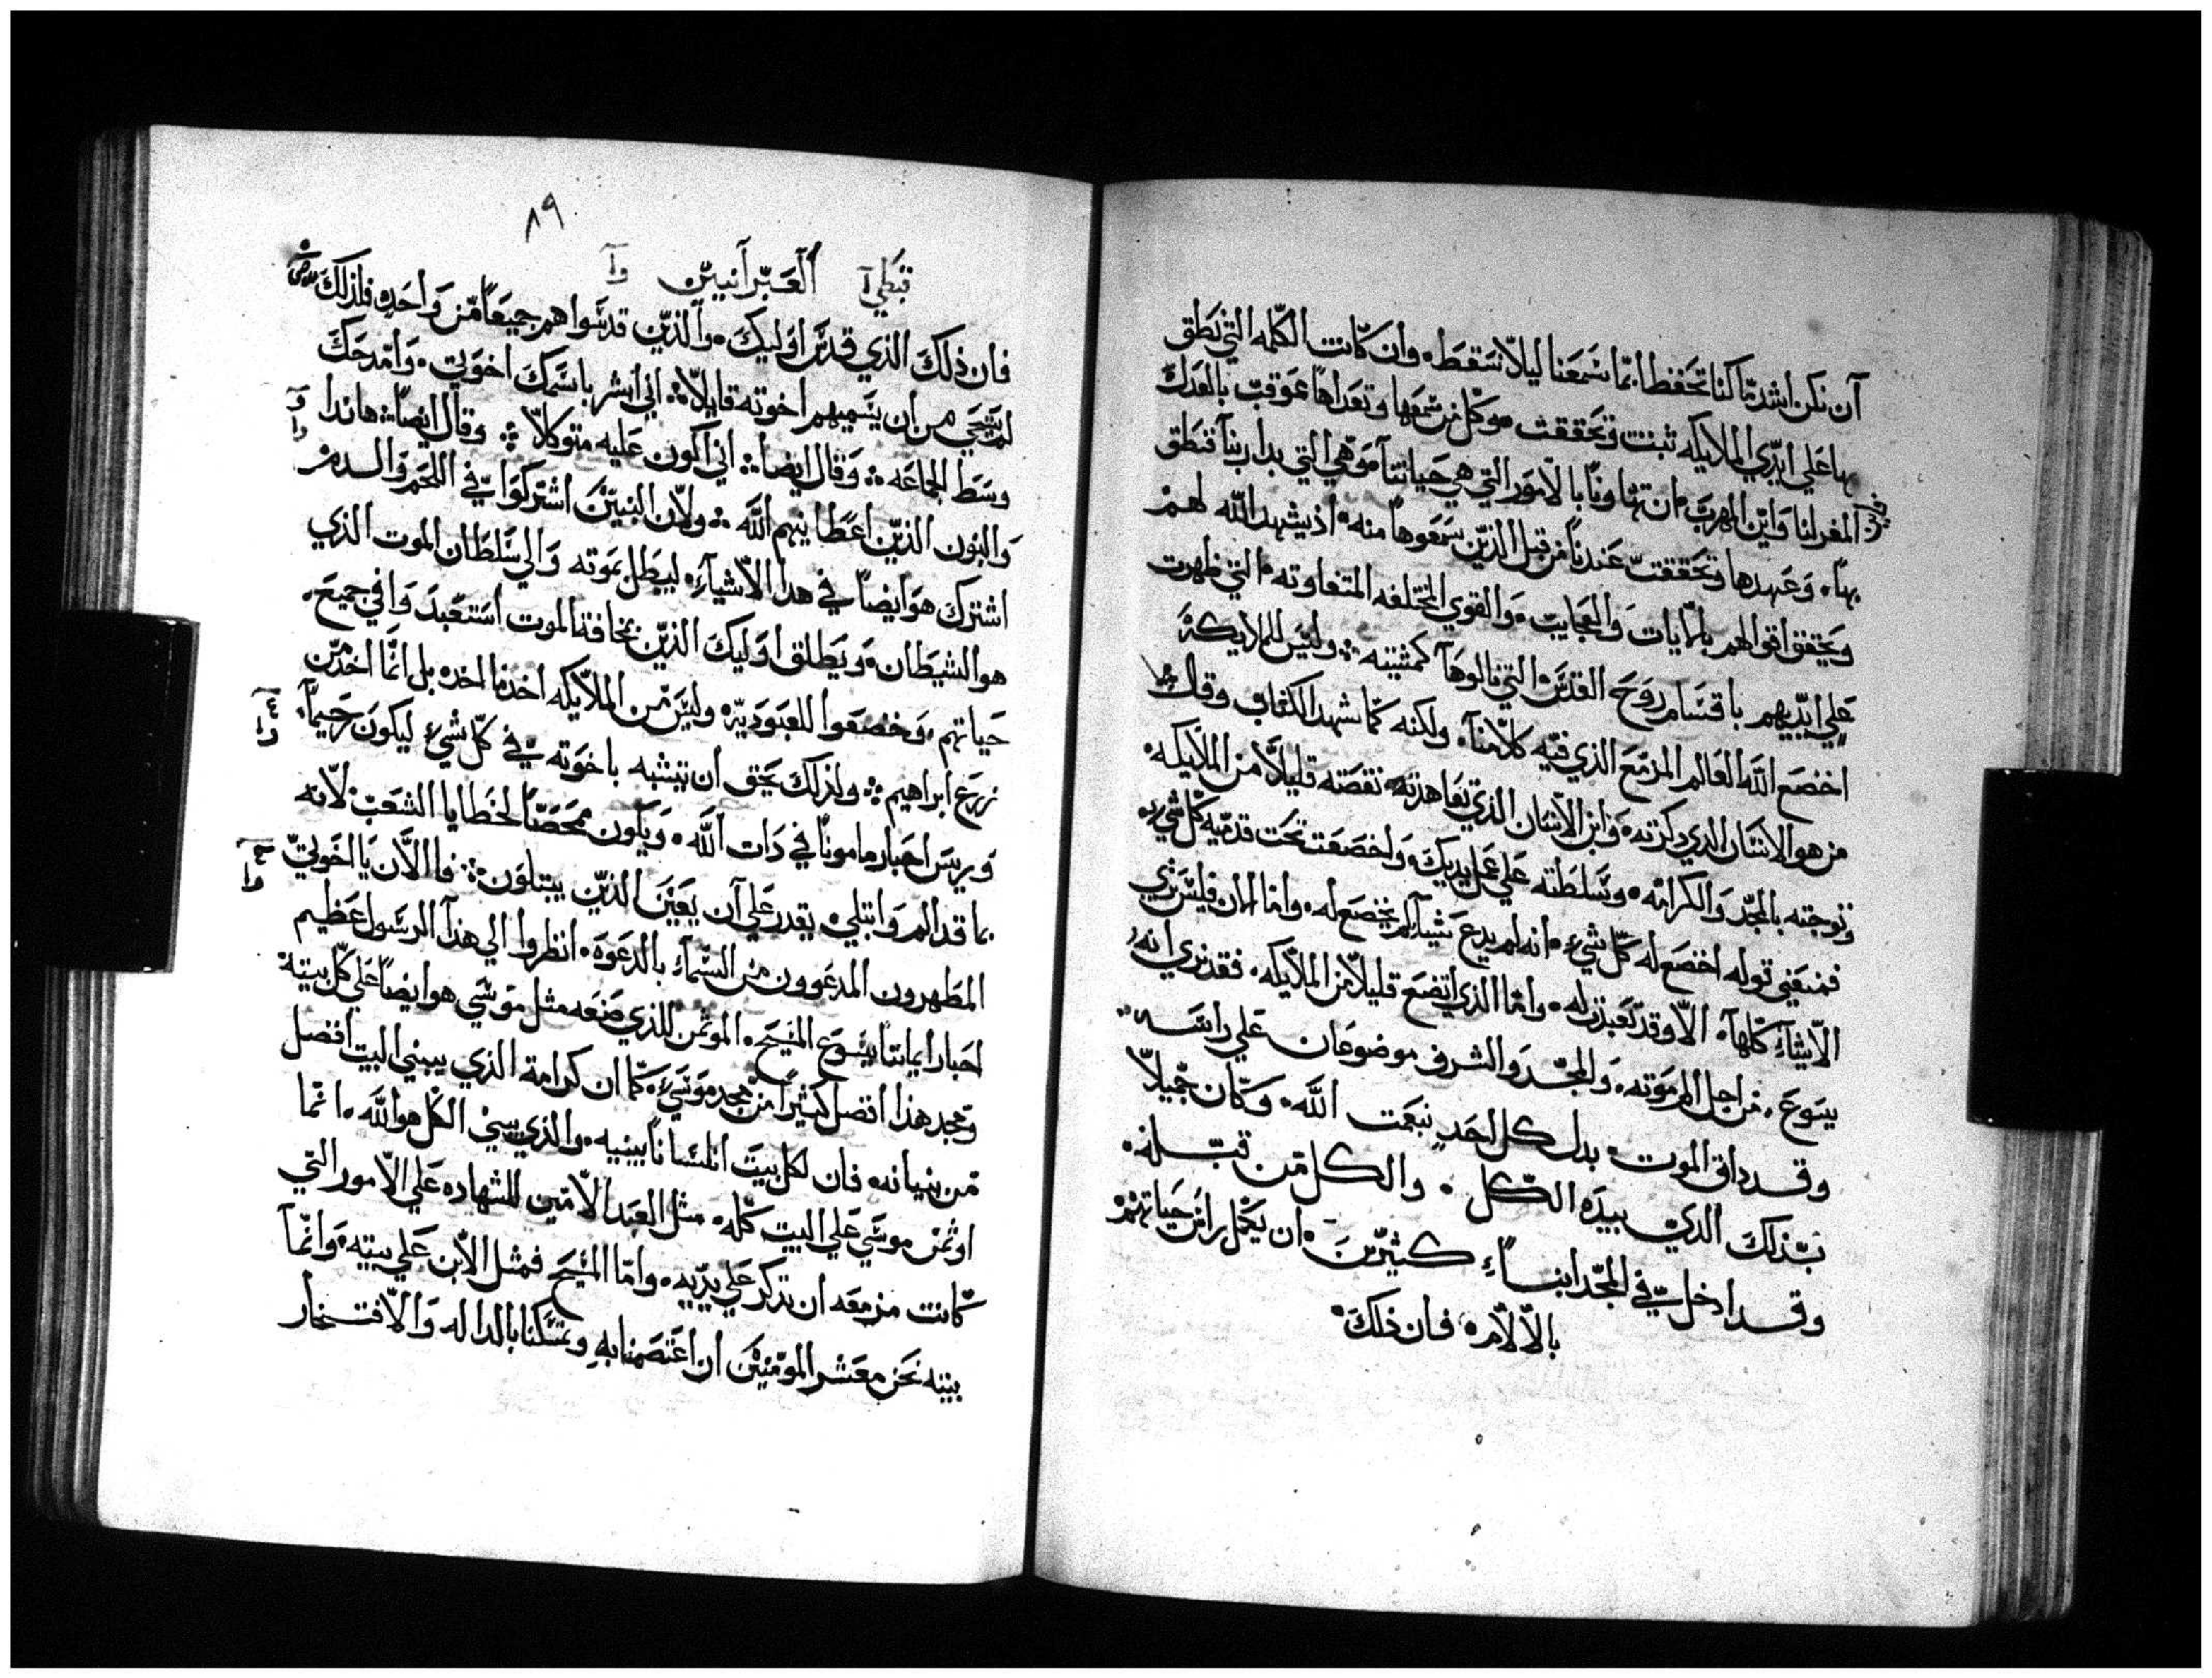 آن نكن اشد ما كنا تحفظا بما سمعنا ليلا نسقط. وان كانت الكلمه التي نطق
بها علي ايدي الملايكه ثبنت وتحققت وكل من سمعها وتعداها عوقب بالعدل
فاين المفر لنا واين المهرب ان تهاونا بالامور التي هي حياتنا وهي التي بدا ربنا فنطق
بها. وعهدها وتحققت عندنا من قبل الذين سمعوها منه. اذ يشهد الله لهم
ويحقق اقوالهم بالايات والعجايب. والقوي المختلفه المتفاوته التي ظهرت
علي ايديهم باقسام روح القدس التي نالوها كمشيته ܀ وليس للملايكة
اخضع الله العالم المزمع الذي فيه كلامنا. ولكنه كما شهد الكتاب وقال
من هو الانسان الذي دكرته. وابن الانسان الذي تعاهدته نقصته قليلا من الملايكه.
وتوجته بالمجد والكرامه. وسلطته علي عمل يديك. واخضعت تحت قدميه كل شي.
فمعني قوله اخضع له كل شيء. انه لم يدع شيا لم يخضع له. واما الان فليس نري
الاشياء كلها. الا وقد تعبدت له. واما الذي اتضع قليلا من الملايكه. فقد نري انه
يسوع. من اجل المر موته. والمجد والشرف موضوعان علي راسه.
وقد داق الموت بدل كل احد بنعمت الله. وكان جميلا
بذلك الذي بيده الكل. والكل من قبله.
وقد ادخل في المجد ابناء كثيرين. ان يكمل راس حياتهم
بالالام. فان ذلك.
٨٩
قبطي ا العبرانيين
فان ذلك الذي قدس اوليك. والذين قدسوا هم جميعا من واحد. فلذلك
لم يستحي من ان يسميهم اخوته قايلا ܀ اني ابشر باسمك اخوتي. وامدحك
وسط الجماعه ܀ وقال ايضا ܀ اني اكون عليه متوكلا ܀ وقال ايضا ܀ هاندا
والبنون الذين اعطانيهم الله ܀ ولان البنين اشتركوا في اللحم والدم
اشترك هو ايضا في هدا الاشياء. ليبطل بموته والي سلطان الموت الذي
هو الشيطان. ويطلق اوليك الذين بمخافة الموت استعبدوا في جميع.
حياتهم. وخضعوا للعبودية. وليس من الملايكه اخد ما اخده بل انما اخد من
زرع ابراهيم ܀ ولذلك يحق ان يتشبه باخوته في كل شيء ليكون رحيما.
وريس احبار مامونا في دات الله. ويكون ممحصا لخطايا الشعب. لانه
بما قد الم وابتلي. يقدر علي آن يعين الذين يبتلون ܀ فالان يا اخوتي
المطهرون المدعوون من السماء بالدعوة. انظروا الي هذا الرسول عظيم
احبار ايماننا يسوع المسيح. الموتمن للذي صنعه مثل موسي هو ايضا علي كل بيته
ومجد هذا افضل كثيرا من مجد موسي. كما ان كرامة الذي يبني البيت افضل
من بنيانه. فان لكل بيت انسانا يبنيه. والذي يبني الكل هو الله. انما
اوتمن موسي علي البيت كله. مثل العبد الامين للشهاده علي الامور التي
كانت مزمعه ان تدكر علي يديه. واما المسيح فمثل الابن علي بيته. وانما
بيته نحن معشر المومنين ان اعتصمنا به وتمسكنا بالداله والافتخار